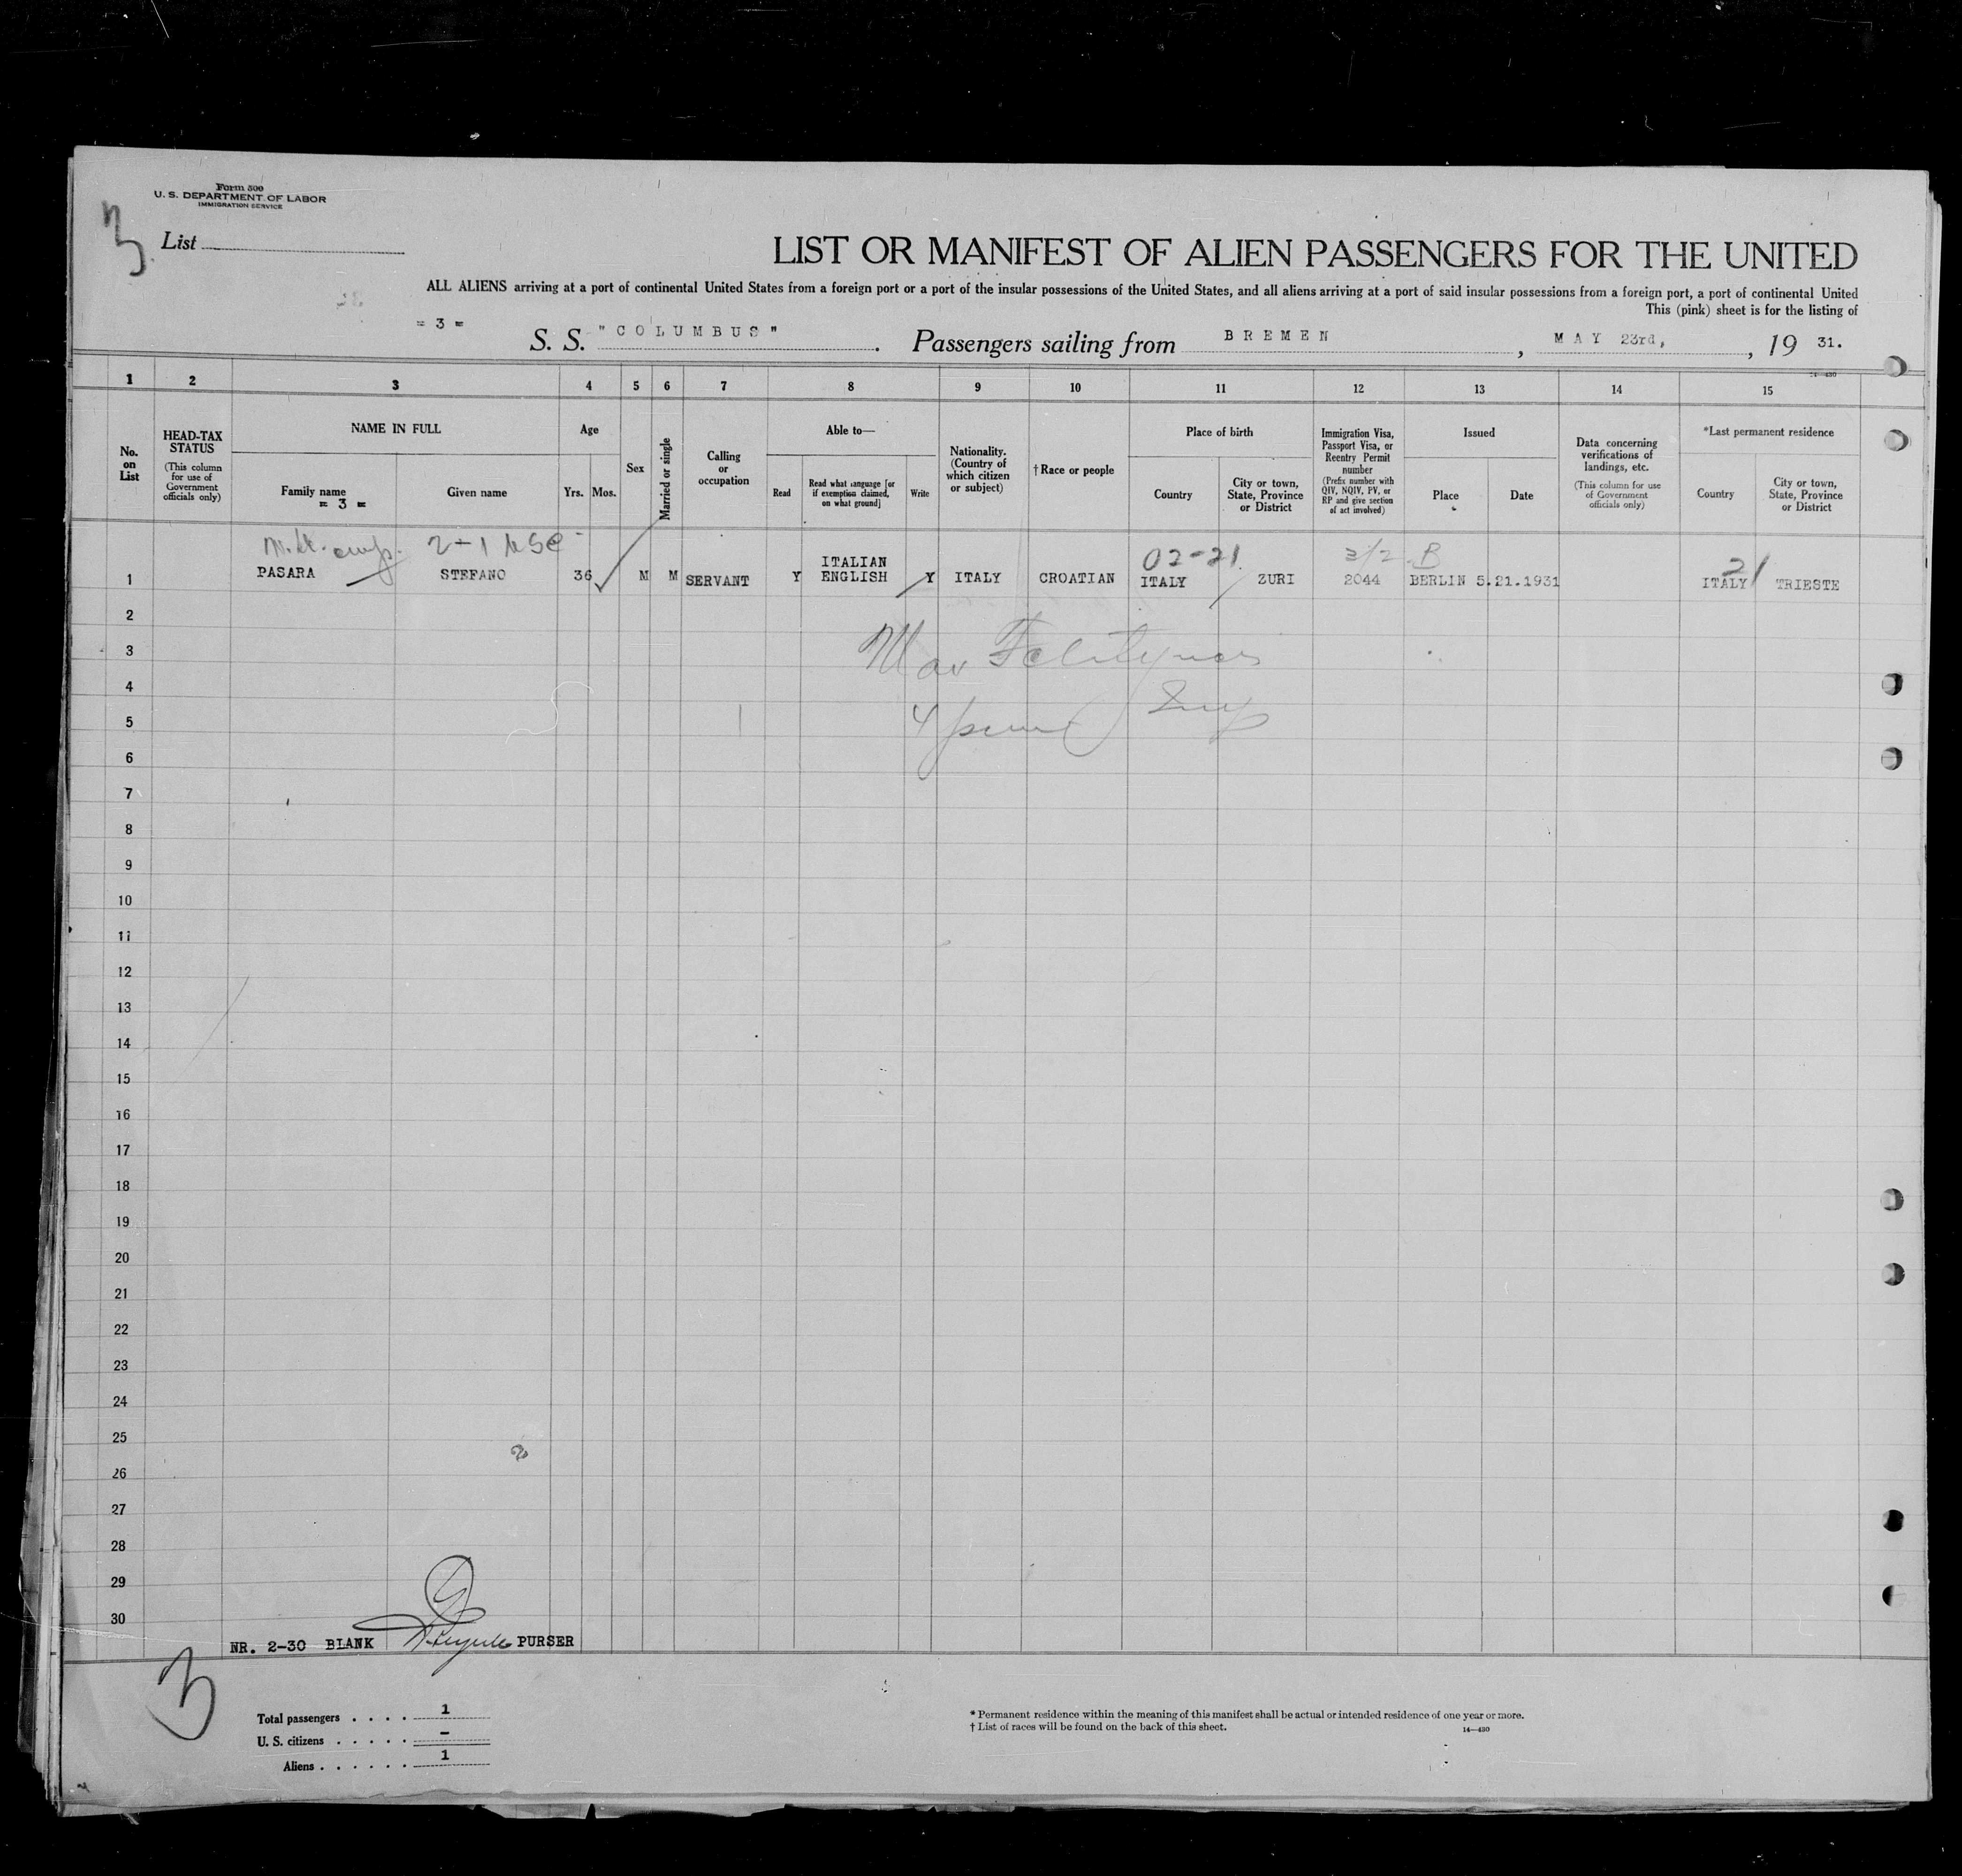 Form 500
U. S. DEPARTMENT OF LABOR
IMMIGRATION SERVICE
3
List
LIST OR MANIFEST OF ALIEN PASSENGERS FOR THE UNITED
ALL ALIENS arriving at a port of continental United States from a foreign port or a port of the insular possessions of the United States, and all aliens arriving at a port of said insular possessions from a foreign port, a port of continental United
This (pink) sheet is for the listing of
= 3 =
S. S. "COLUMBUS". Passengers sailing from BREMEN, MAY 23rd, , 19 31.
14—430
1 2 3 4 5 6 7 8 9 10 11 12 13 14 15
No. on List
HEAD-TAX STATUS
(This column for use of Government officials only)
NAME IN FULL
Family name
= 3 =
Given name
Age
Yrs. Mos.
Sex
Married or single
Calling or occupation
Able to—
Read
Read what language [or if exemption claimed, on what ground]
Write
Nationality. (Country of which citizen or subject)
†Race or people
Place of birth
Country
City or town, State, Province or District
Immigration Visa, Passport Visa, or Reentry Permit number
(Prefix number with QIV, NQIV, PV, or RP and give section of act involved)
Issued
Place
Date
Data concerning verifications of landings, etc.
(This column for use of Government officials only)
*Last permanent residence
Country
City or town, State, Province or District
2-1 02-21. 3/2 B 21
1 PASARA STEFANO 36 M M SERVANT Y ITALIAN ENGLISH Y ITALY CROATIAN ITALY ZURI 2044 BERLIN 5.21.1931 ITALY TRIESTE
2
3
4
5
6
7
8
9
10
11
12
13
14
15
16
17
18
19
20
21
22
23
24
25
26
27
28
29
30
NR. 2-30 BLANK PURSER
3
Total passengers . . . . 1
U. S. citizens . . . . . –
Aliens . . . . . . 1
* Permanent residence within the meaning of this manifest shall be actual or intended residence of one year or more.
† List of races will be found on the back of this sheet.
14—430